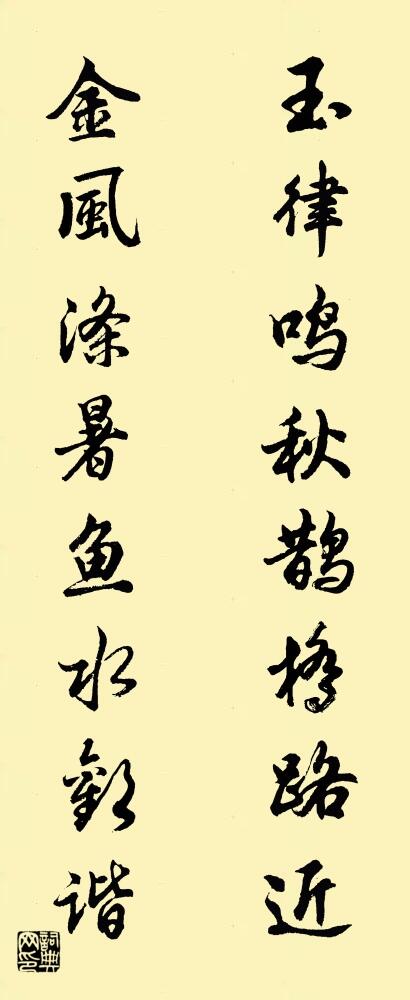 玉律鸣秋鹊桥路近
金風涤暑鱼水歡谐
詞典网印